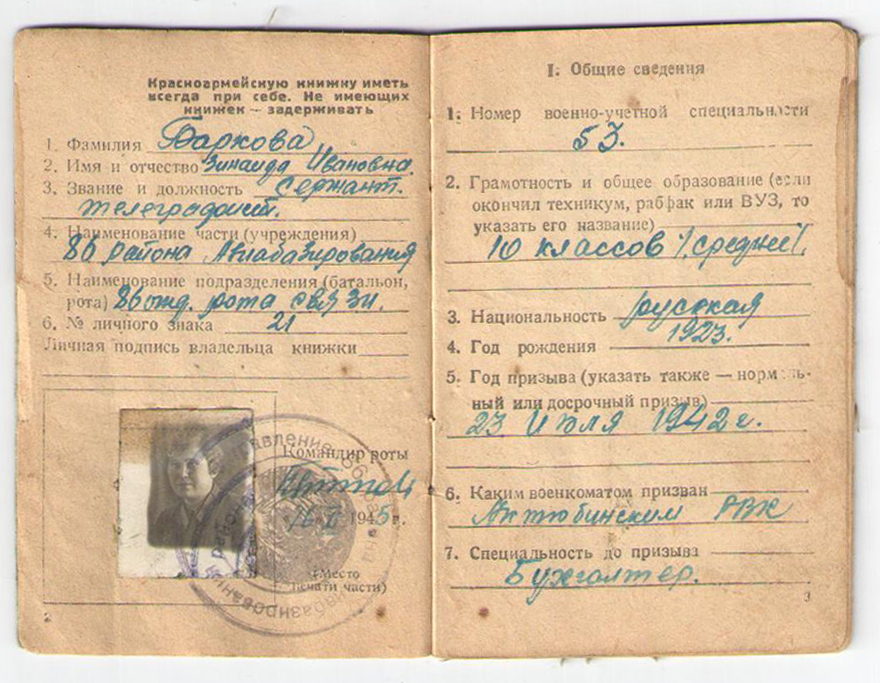 Красноармейскую книжку иметь
всегда при себе. Не имеющих
книжек — задерживать
1. Фамилия Баркова
2. Имя и отчество Зинаида Ивановна.
3. Звание и должность Сержант.
телеграфист.
4. Наименование части (учреждения)
86 района Авиабазирования
5. Наименование подразделения (батальон,
рота) 86 отд. рота связи.
6. № личного знака 21
Личная подпись владельца книжки
Командир роты
16 1945 г.
(Место
печати части)
2
I. Общие сведения
1. Номер военно-учетной специальности
53.
2. Грамотность и общее образование (если
окончил техникум, рабфак или ВУЗ, то
указать его название)
10 классов /среднее/.
3. Национальность русская
4. Год рождения 1923.
5. Год призыва (указать также — нормаль-
ный или досрочный призыв)
23 Июля 1942 г.
6. Каким военкоматом призван
Актюбинским РВК
7. Специальность до призыва
Бухгалтер.
3